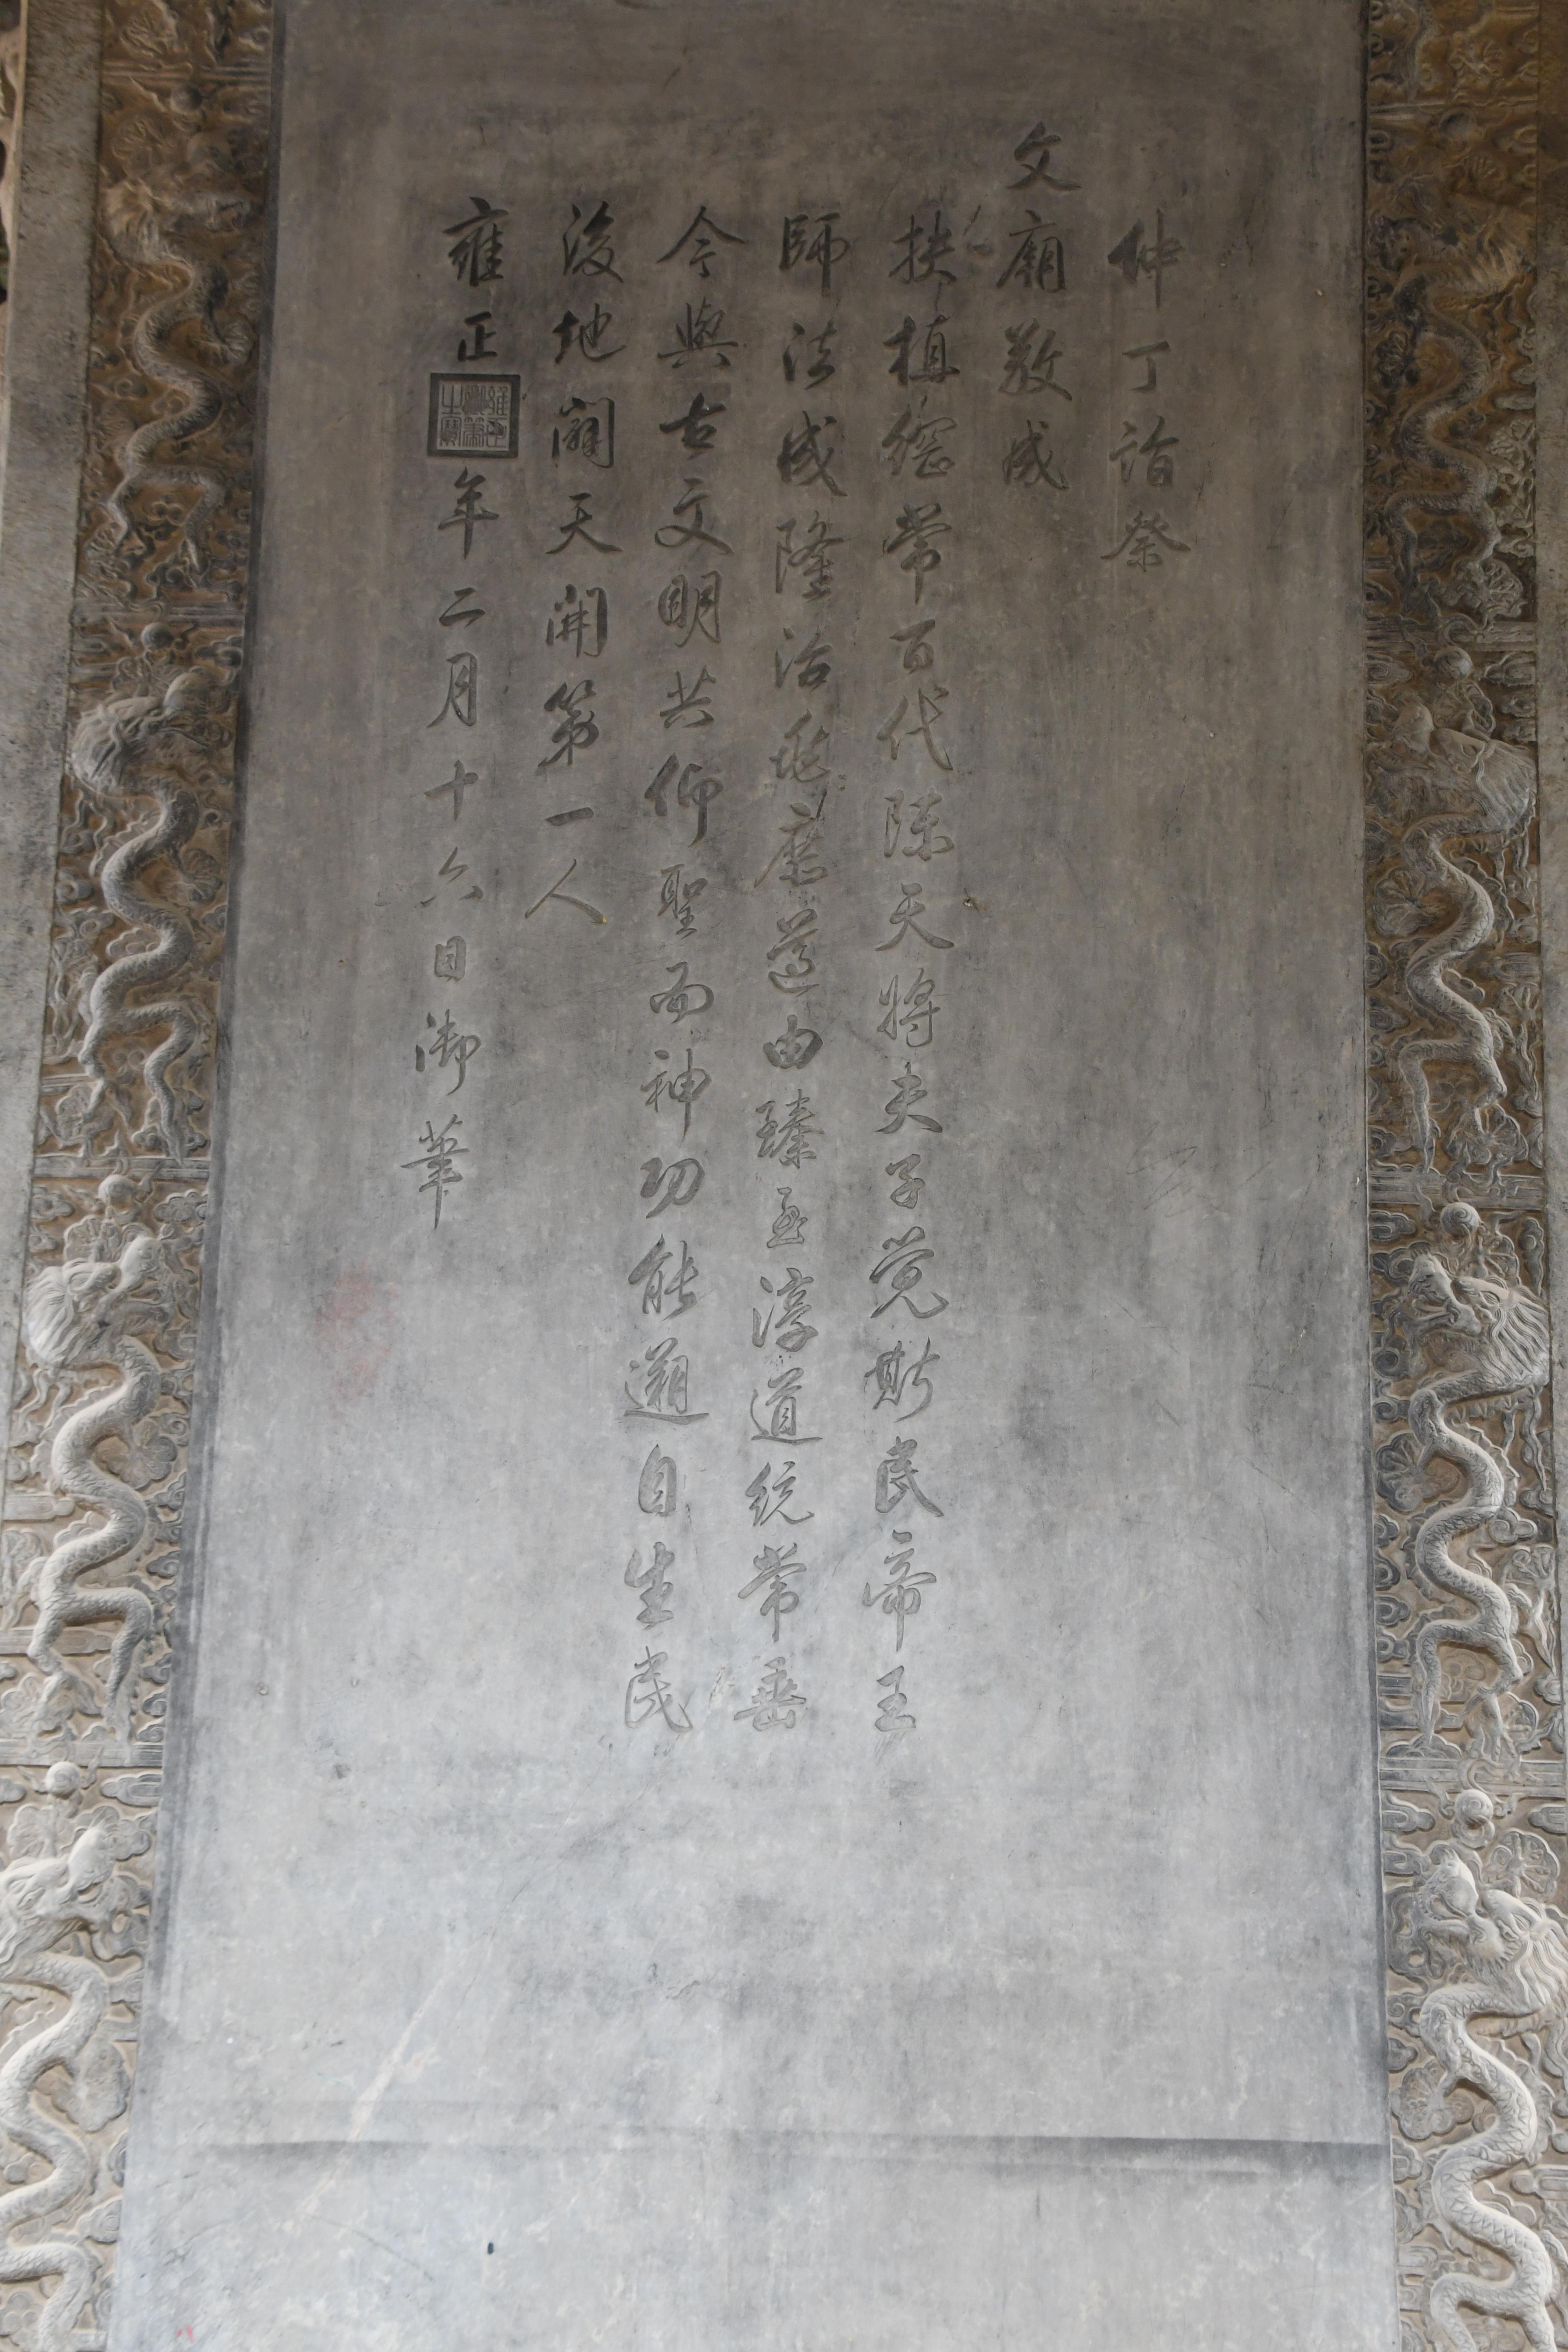 仲丁詣祭
文廟敬成
扶植綱常百代陳天將夫子覺斯民帝王
師法成隆治兆庶遵由臻至淳道統常垂
今與古文明共仰聖而神功能遡自生民
後地闢天開第一人
雍正年二月十六日御筆
雍正御筆之寶